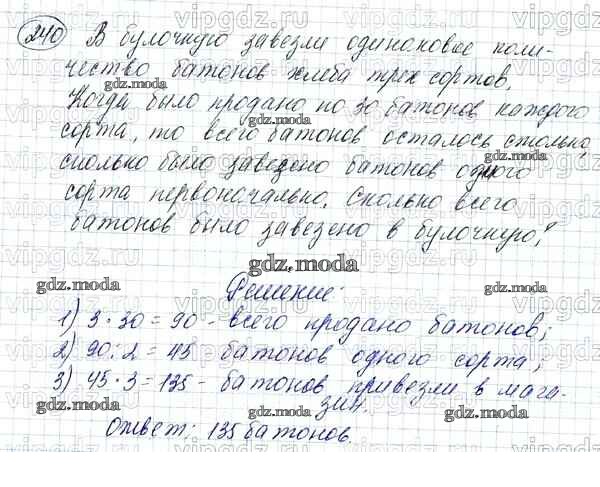 240) В булочную завезли одинаковое коли-
чество батонов хлеба трех сортов.
Когда было продано по 30 батонов каждого
сорта, то всего батонов осталось столько,
сколько было завезено батонов одного
сорта первоначально. Сколько всего
батонов было завезено в булочную?
Решение:
1) 3 · 30 = 90 - всего продано батонов;
2) 90 : 2 = 45 батонов одного сорта;
3) 45 · 3 = 135 - батонов привезли в мага-
зин.
Ответ: 135 батонов.
gdz.moda
vipgdz.ru